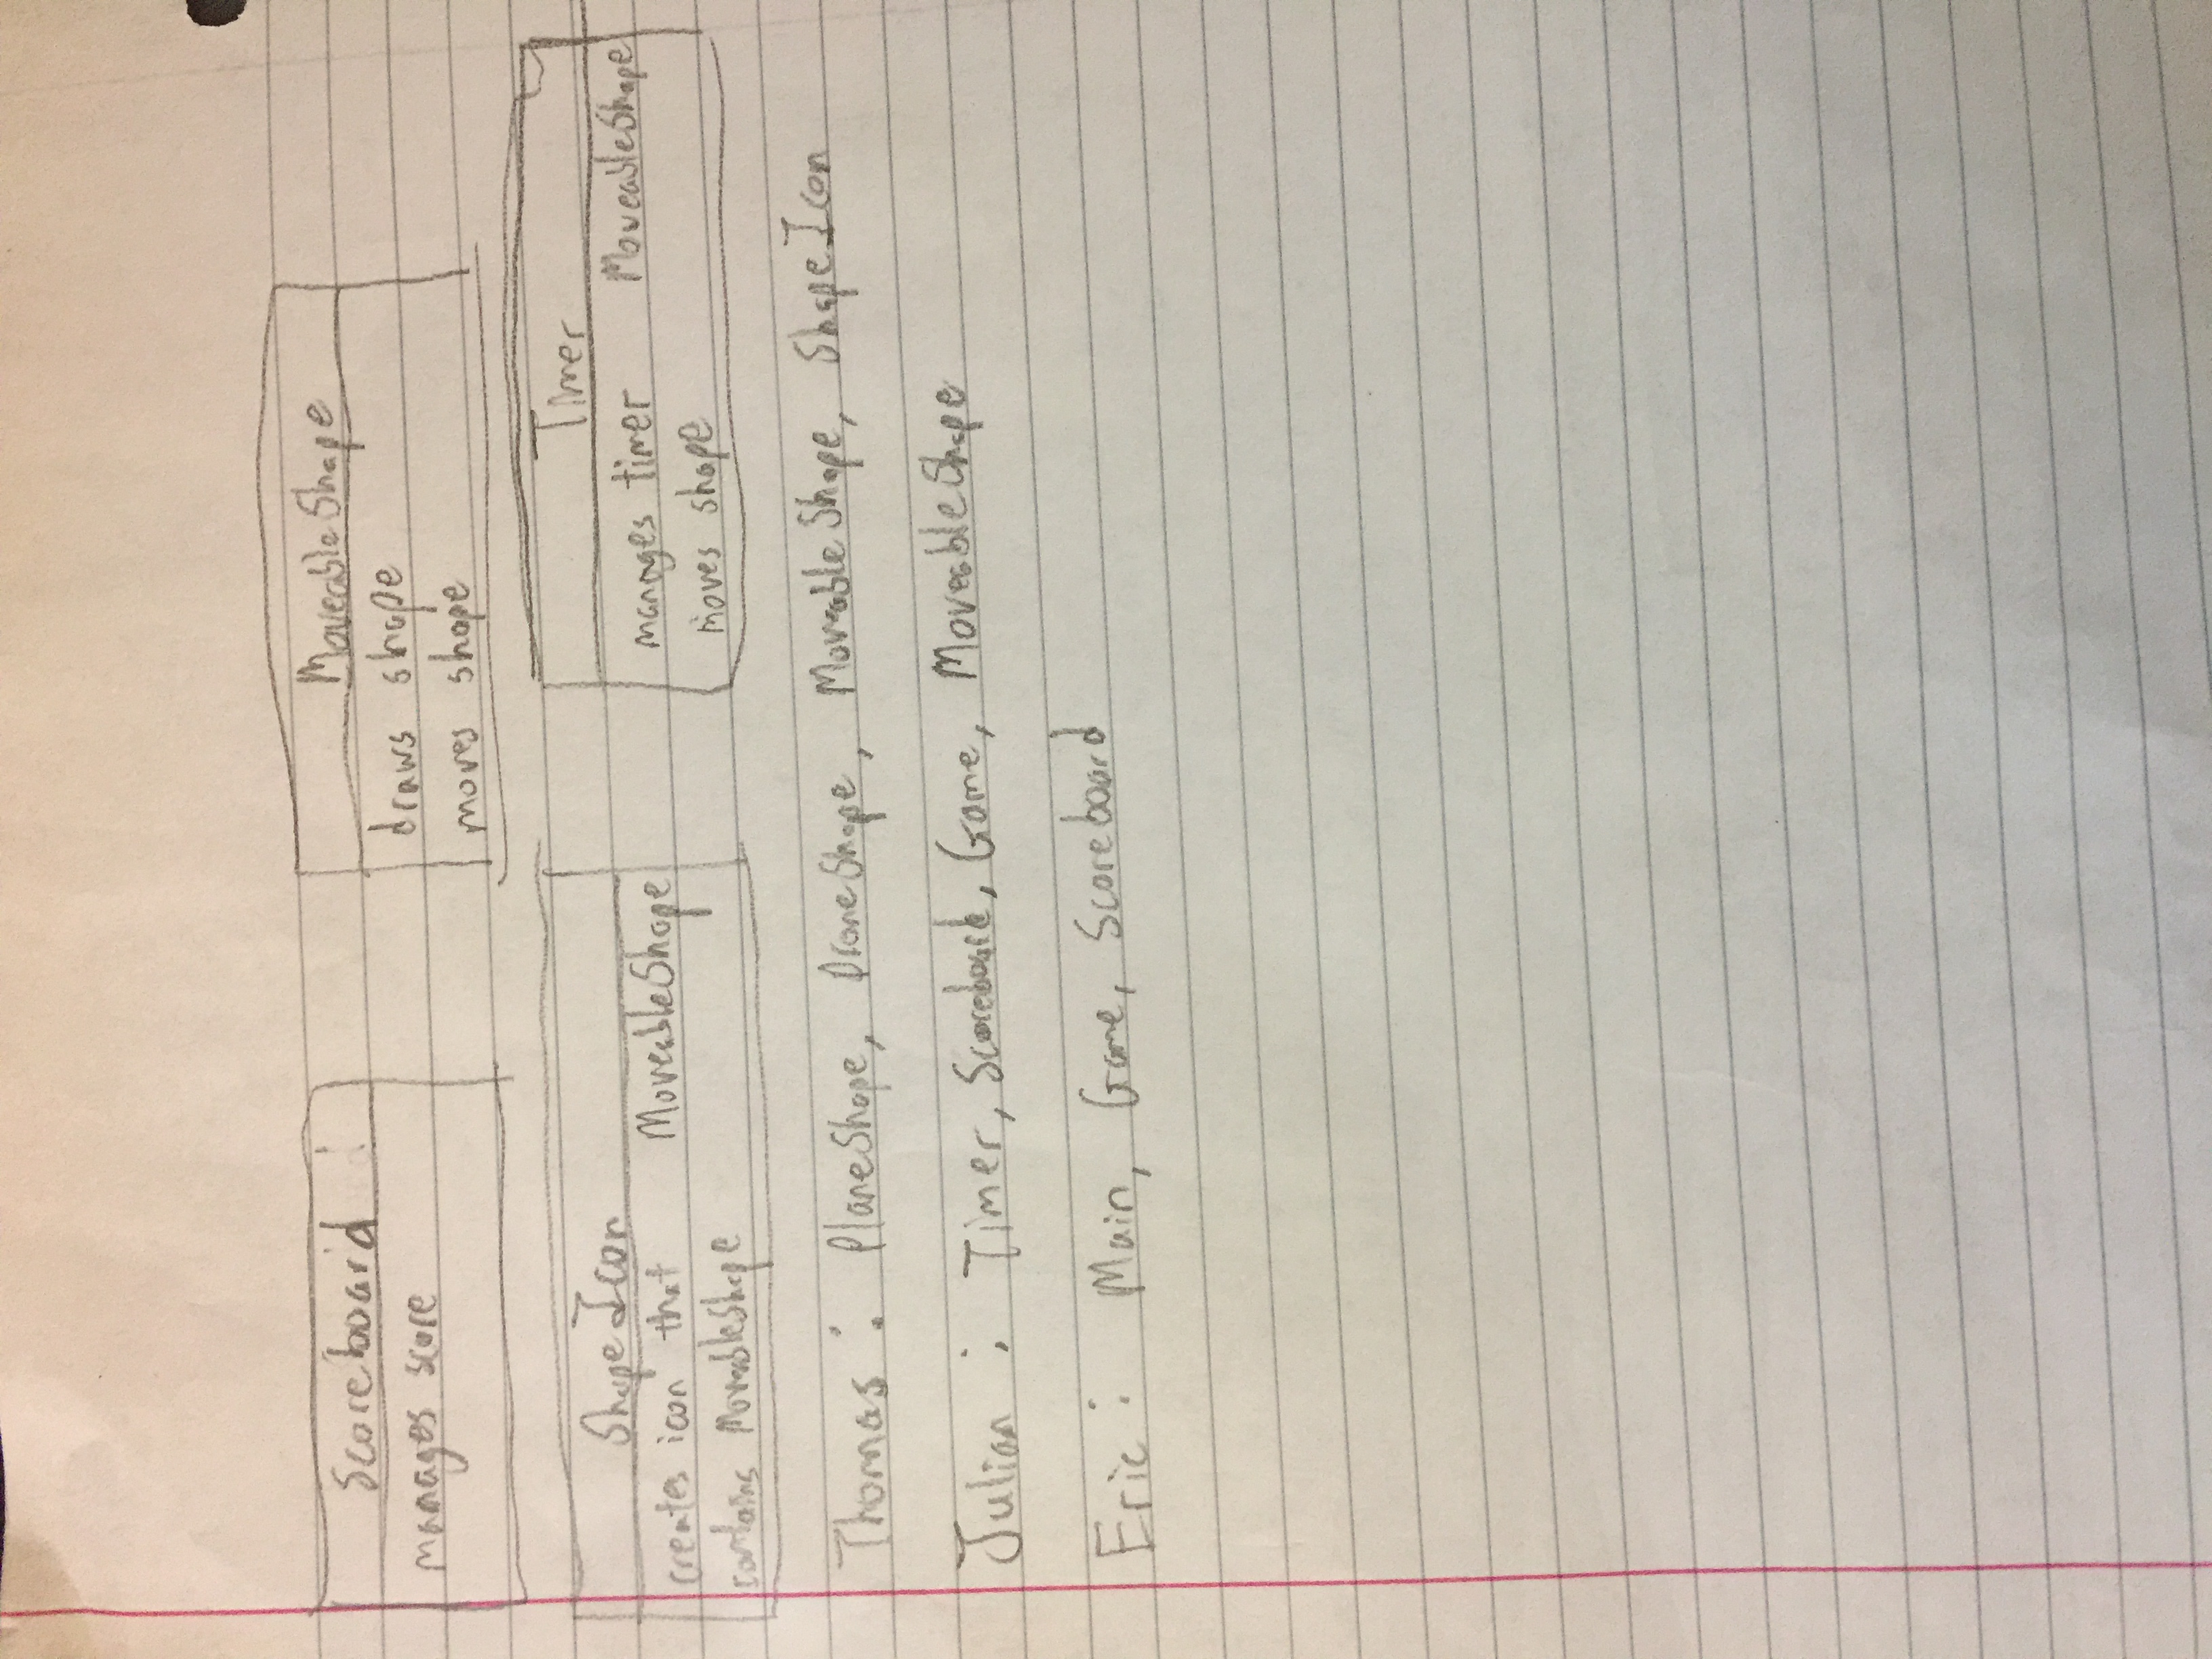 Scoreboard
manages score
MoveableShape
draws shape
moves shape
ShapeIcon
creates icon that MoveableShape
contains MovableShape
Timer
manages timer MoveableShape
moves shape
Thomas : PlaneShape, DroneShape, MoveableShape, ShapeIcon
Julian : Timer, Scoreboard, Game, MoveableShape
Eric : Main, Game, Scoreboard